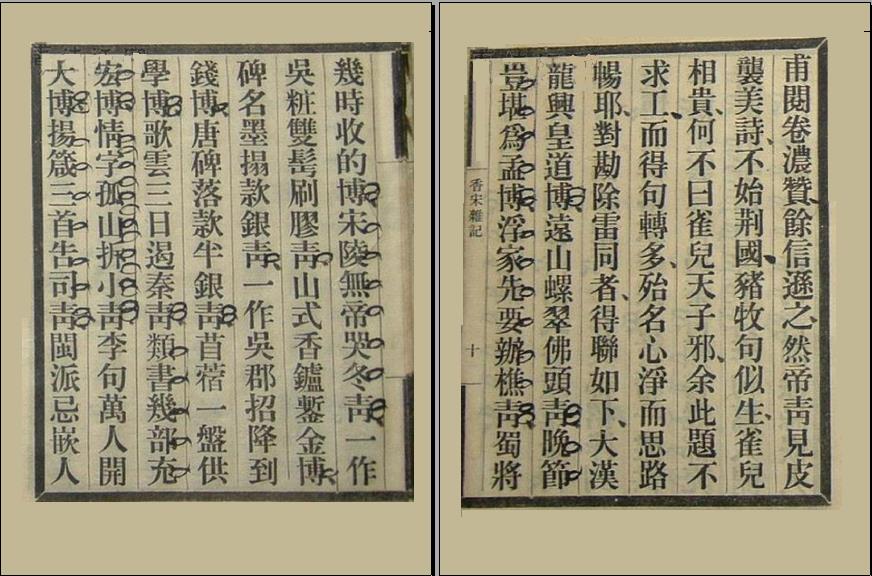 甫閱卷濃贊餘信遜之然帝靑見皮
襲美詩、不始荆國、豬牧句似生、雀兒
相貴、何不曰雀兒天子邪、余此題不
求工、而得句轉多、殆名心淨而思路
暢耶、對勘除雷同者、得聯如下、大漢
龍興皇道博遠山螺翠佛頭靑晚節
豈堪爲孟博浮家先要辦樵靑蜀將
香宋雜記
十
幾時收的博宋陵無帝哭冬靑一作
吳粧雙髩刷膠靑山式香鑪鏨金博
碑名墨搨款銀靑一作吳郡招降到
錢博唐碑落款半銀靑苜蓿一盤供
學博歌雲三日遏秦靑類書幾部充
宏博情字孤山拆小靑李句萬人開
大博揚箴三首告司靑閩派忌嵌人